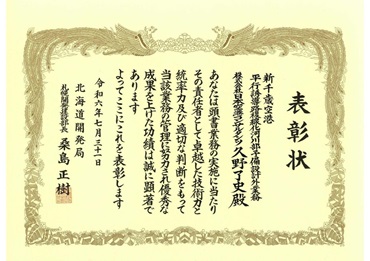 表彰状
新千歳空港
平行誘導路複線化滑川部予備設計外業務
久野了史殿
あなたは頭書業務の実施に当たり
その責任者として卓越した技術力と
統率力及び適切な判断をもって
当該業務の管理に努力され優秀な
成果を上げた功績は誠に顕著で
あります
よってここにこれを表彰します
令和六年七月三十一日
北海道開発局
札幌開発建設部長 桑島正樹